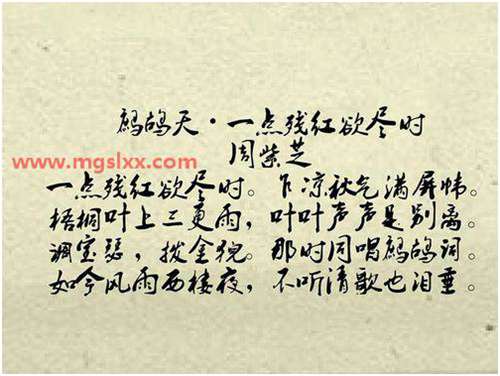 鹧鸪天·一点残红欲尽时
周紫芝
www.mgslxx.com
一点残红欲尽时。乍凉秋气满屏帏。
梧桐叶上三更雨，叶叶声声是别离。
调宝瑟，拨金猊。那时同唱鹧鸪词。
如今风雨西楼夜，不听清歌也泪垂。